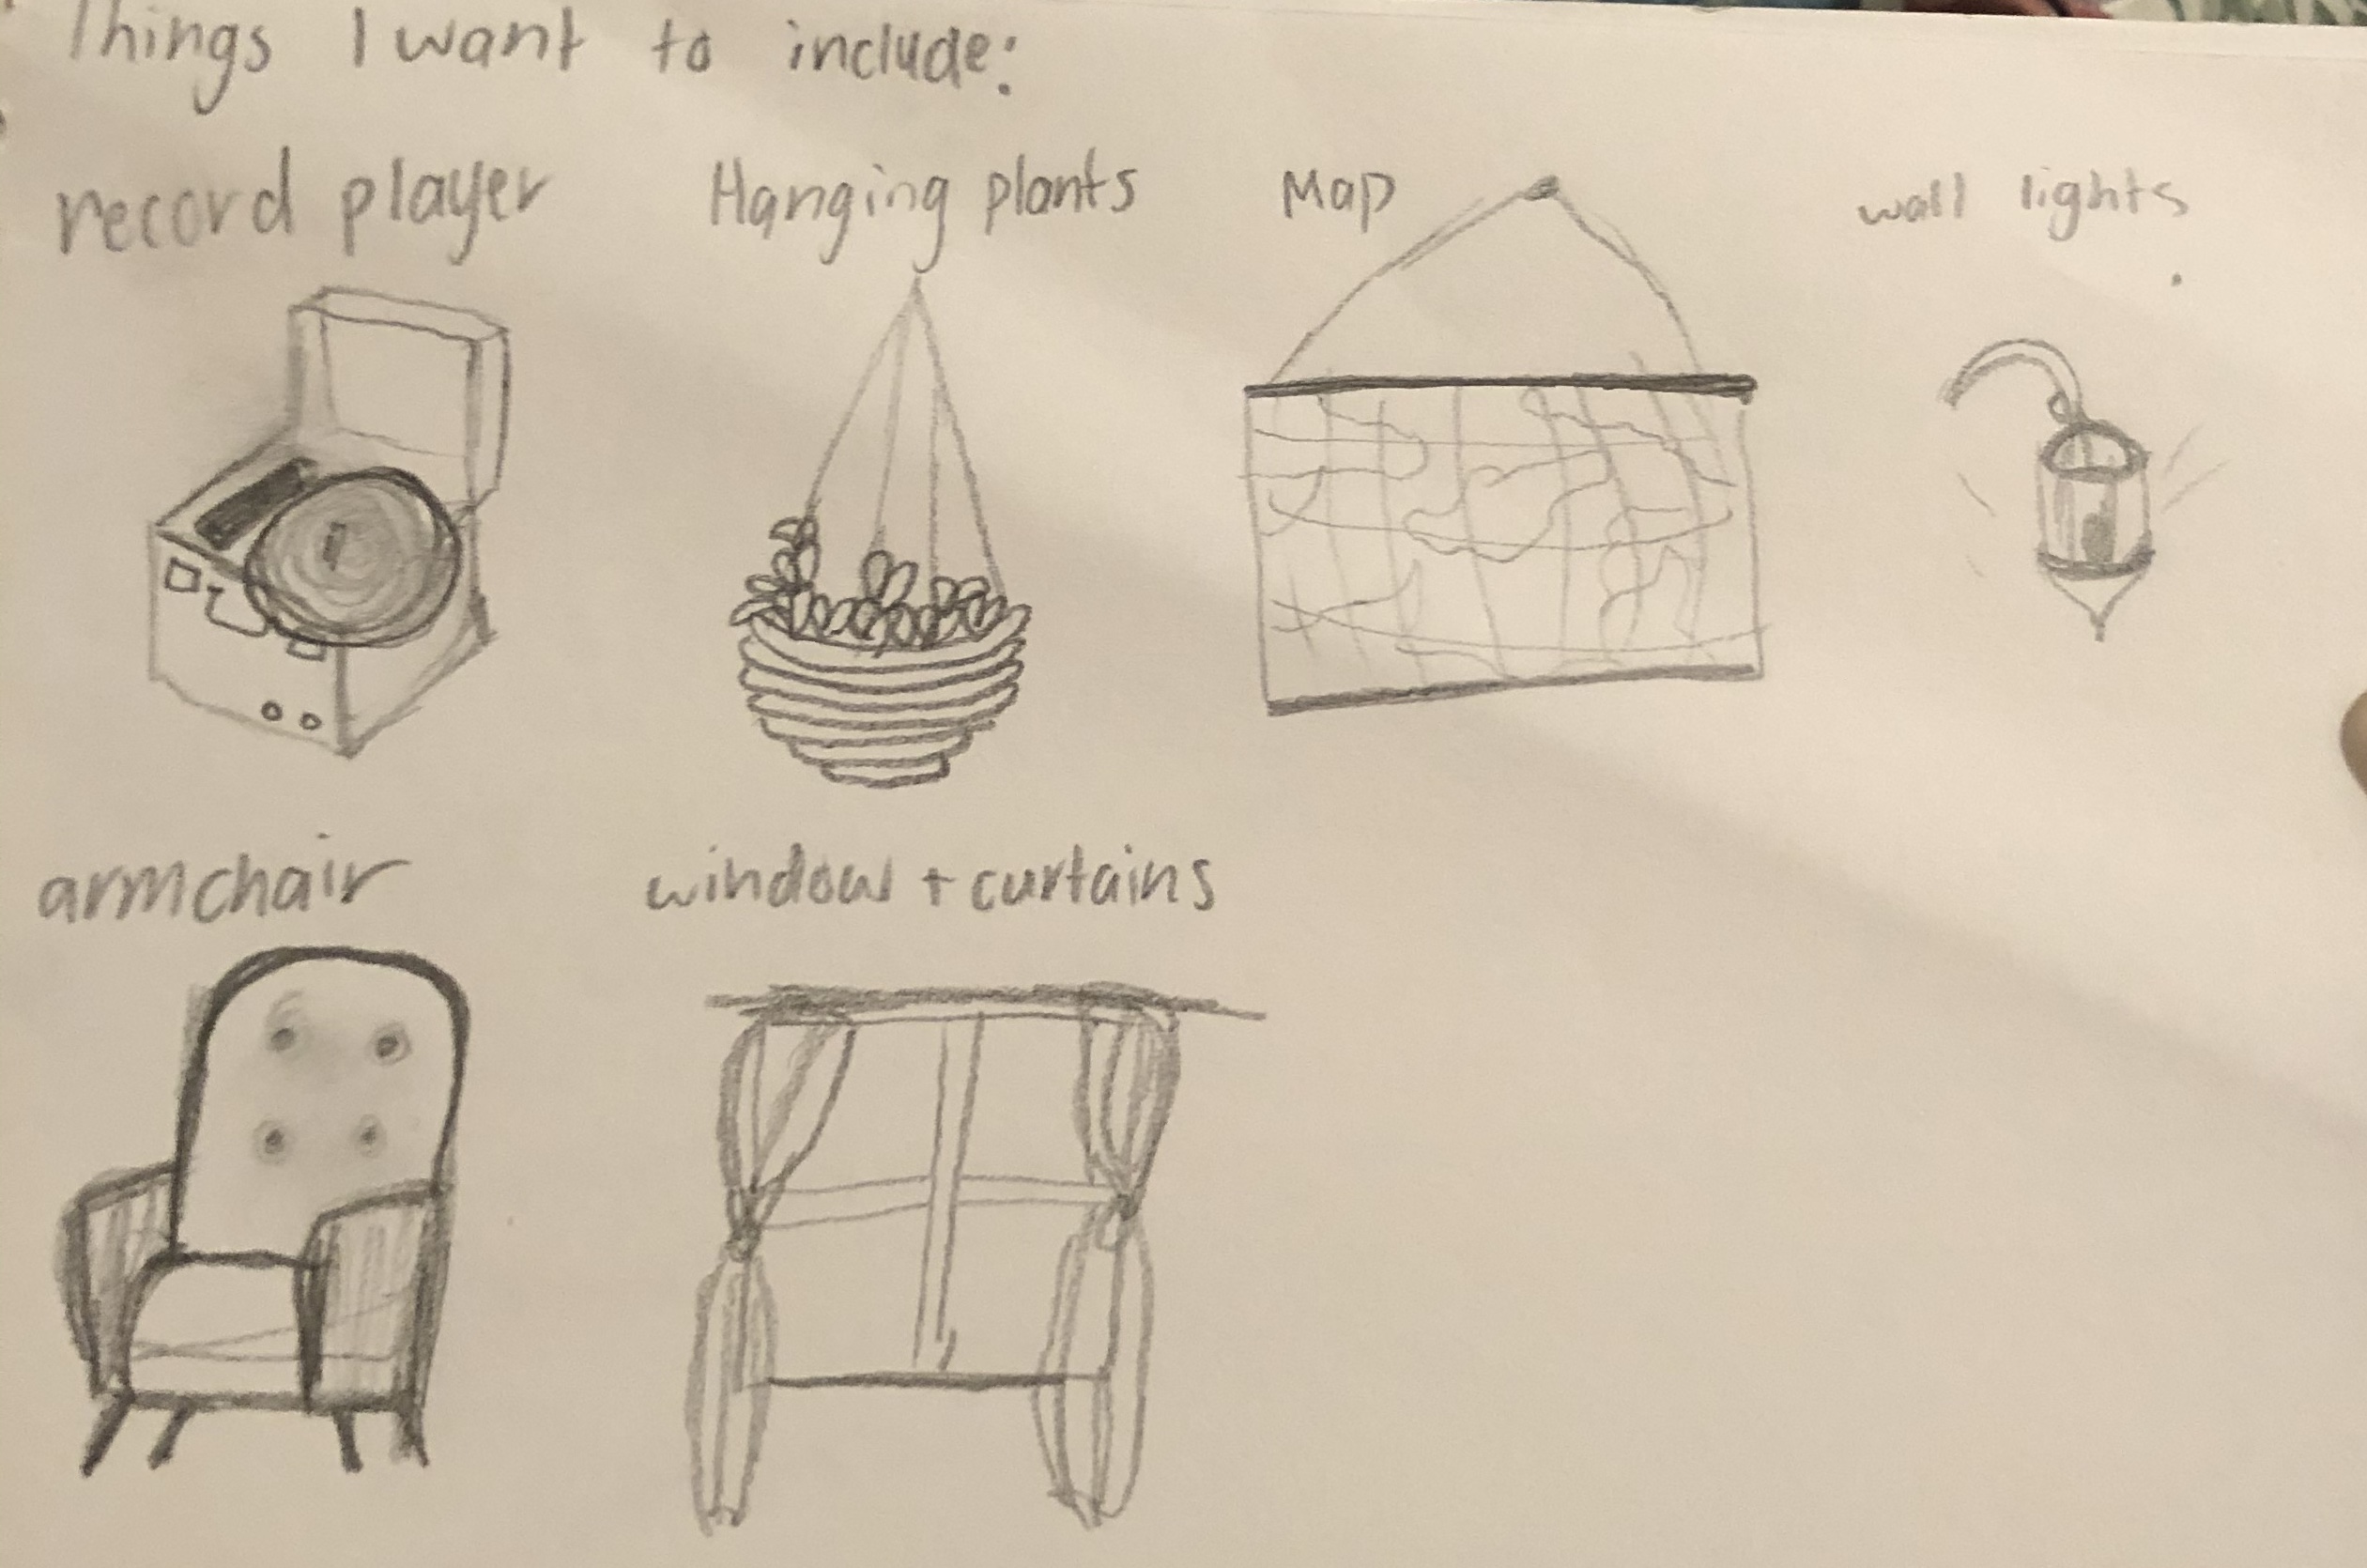 Things I want to include:
record player
Hanging plants
Map
wall lights
armchair
window + curtains